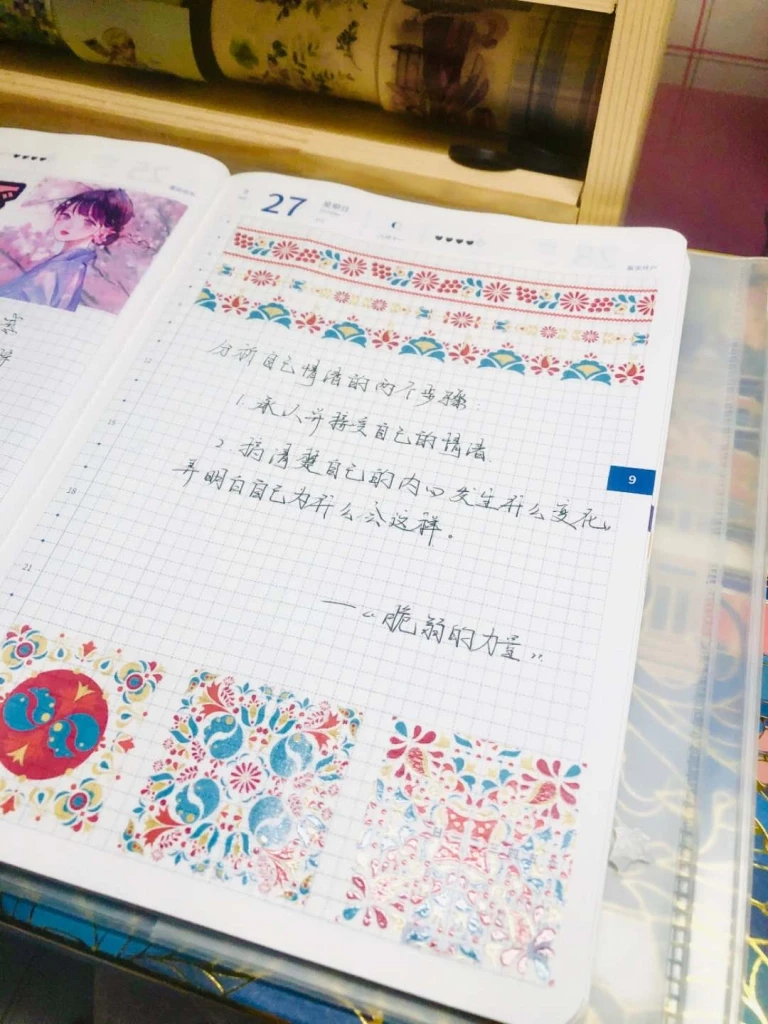 27 星期日
分析自己情绪的两个步骤:
1. 承认并接受自己的情绪.
2. 搞清楚自己的内心发生什么变化,
弄明白自己为什么会这样。
——“脆弱的力量”
9
12
15
18
21